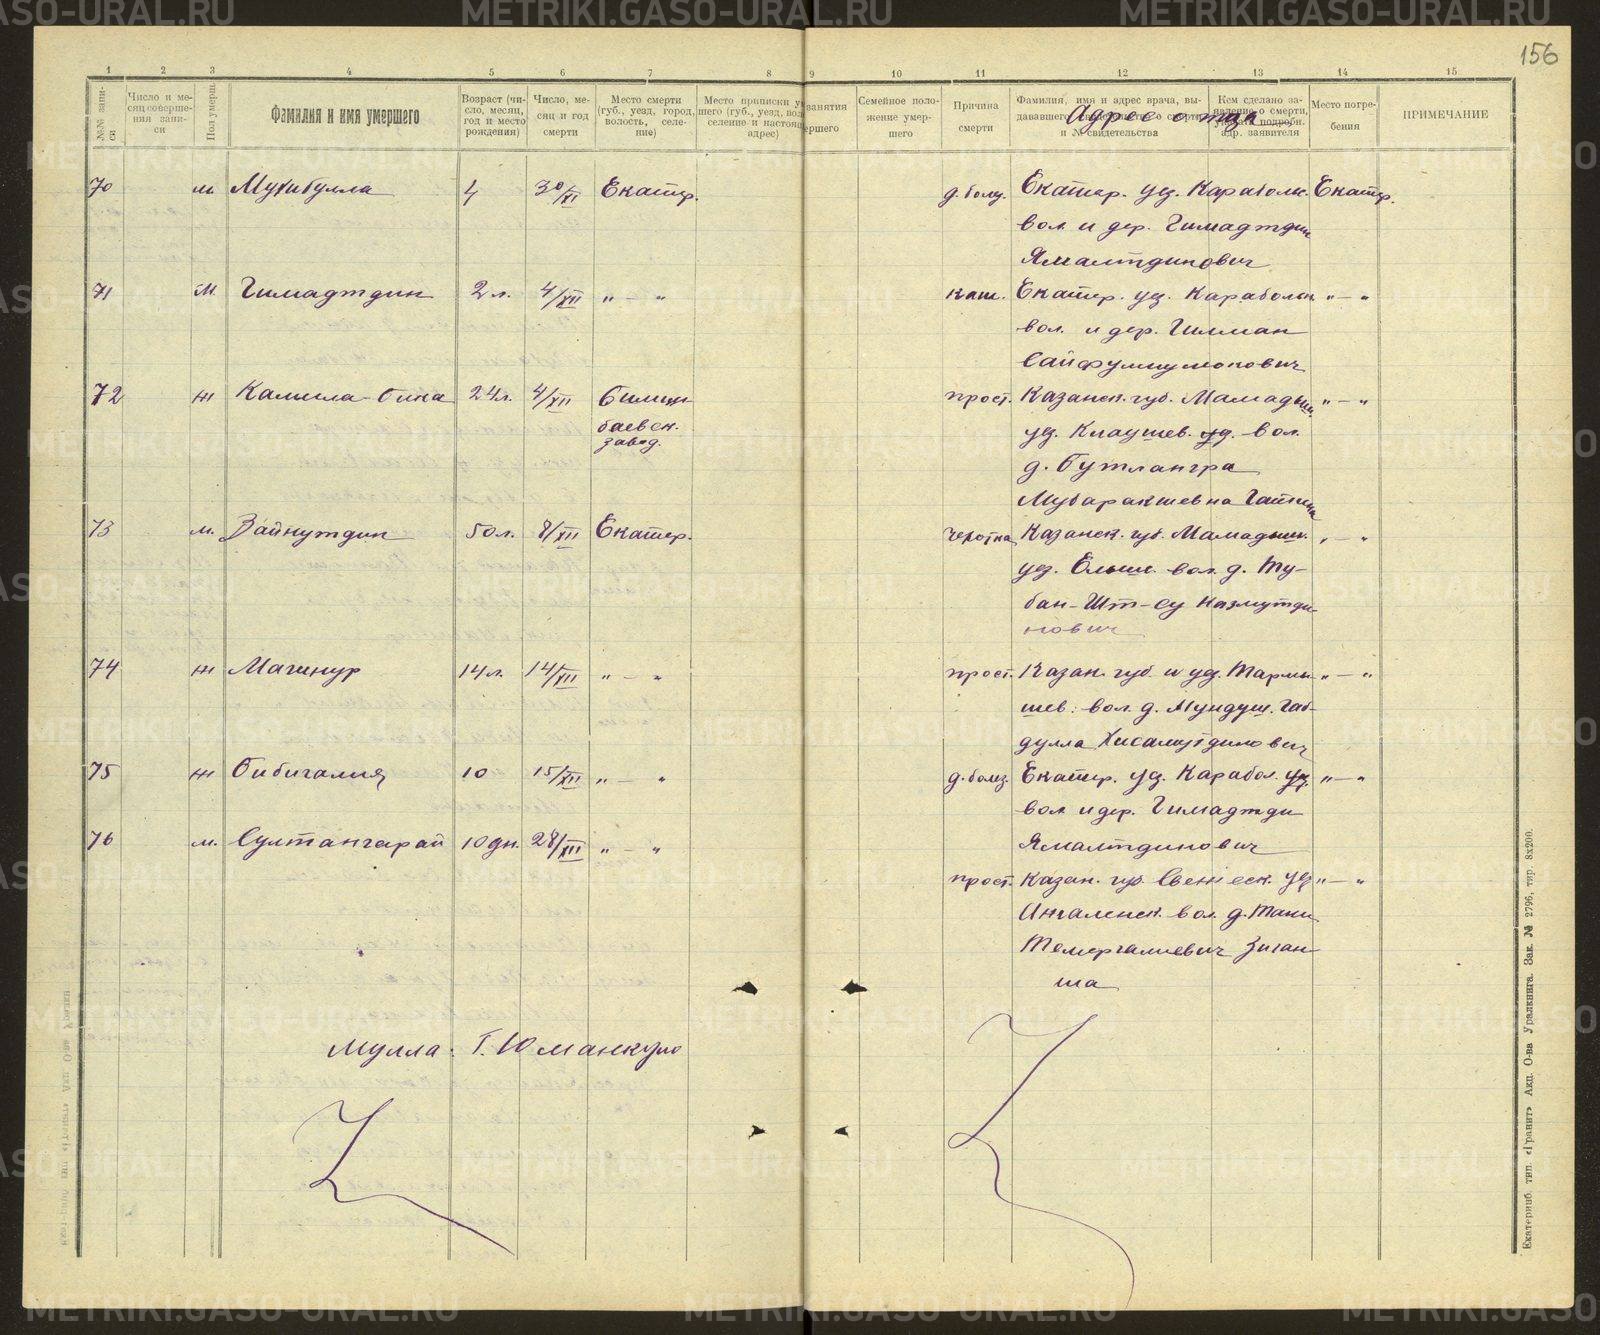 156
1 2 3 4 5 6 7 8 9 10 11 12 13 14 15
№№ записи
Число и месяц совершения записи
Пол умерш.
Фамилия и имя умершего
Возраст (число, месяц, год и место рождения)
Число, месяц и год смерти
Место смерти (губ., уезд, город, волость, селение)
Место приписки
занятия
Семейное положение умершего
Причина смерти
Фамилия, имя и адрес врача, выдававшего свидетельство о смерти, и № свидетельства
Адрес отца
Кем сделано заявление о смерти, указать подробн. адр. заявителя
Место погребения
ПРИМЕЧАНИЕ
70 м Мухибулла 4 30/XI Екатер. Екатер. уез. Караболк. Екатер.
вол. и дер. Гимадтдин
Ямалтдинович
71 м. Гимадтдин 2 л. 4/XII " — " каш. Екатер. уез. Караболык " — "
вол. и дер. Гилман
72 ж Камила-бика 24 л. 4/XII Билим- прост. Казанск. губ. Мамадыш " — "
баевск. уез. Клаушев. уд. вол.
завод. д. Бутлангра
Мубаракшевна
73 м. Зайнутдин 50 л. 8/XII Екатер. чехотка Казанск. губ. Мамадыш. " — "
уез. вол. д. Ту-
бан-Шт-су Казмутди-
нович
74 ж Магинур 14 л. 14/XII " — " прост. Казан. губ. и уез. Тармы- " — "
шев. вол. д. Мундуш. Габ-
дулла Хисамутдинович
75 ж Бибигалия 10 15/XII " — " д. болез. Екатер. уез. Карабол. уез. " — "
вол. и дер. Гимадтди
76 м. Султангарай 10 дн. 28/XII " — " Ямалтдинович
прост. Казан. губ. Свенжск. уез. " — "
вол. д.
Темергалиевич Зиган-
ша
Мулла: Г. Юманкуло
Екатеринб. тип. «Гранит» Акц. О-ва Уралкнига. Зак. № 2796, тир. 8x200.
METRIKI.GASO-URAL.RU